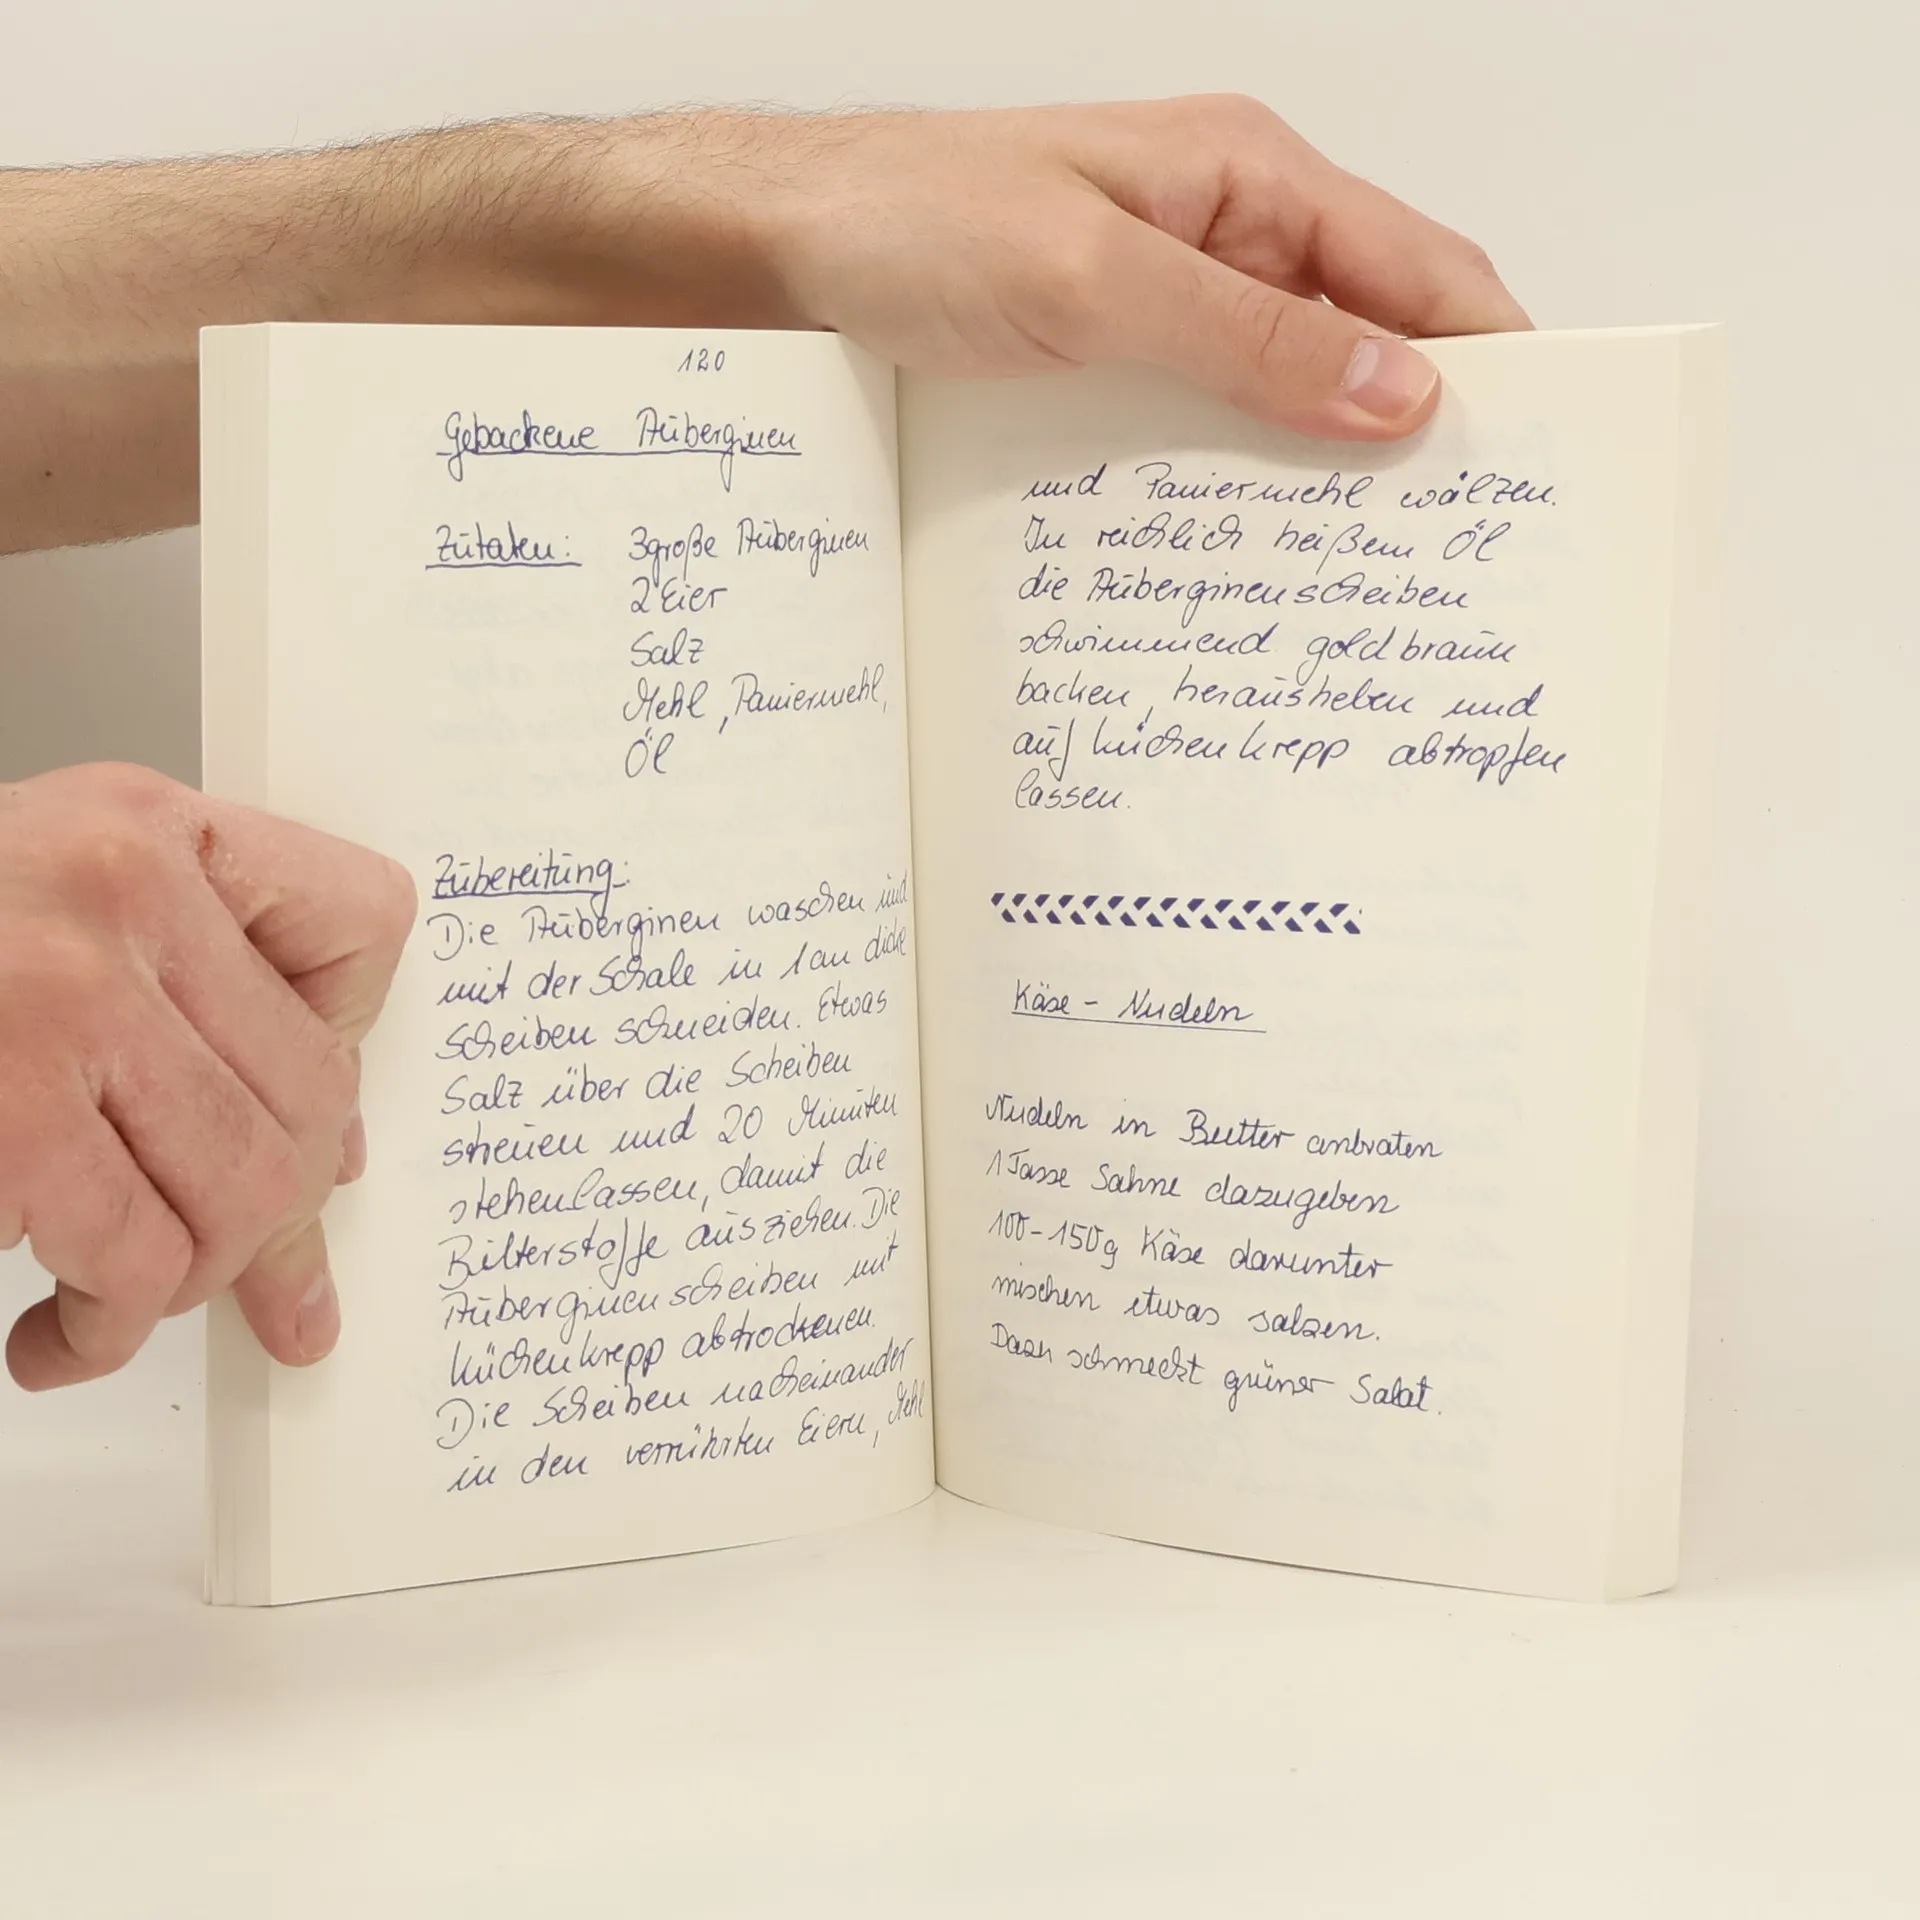 120
Gebackene Auberginen
Zutaten: 3 große Auberginen
2 Eier
Salz
Mehl, Paniermehl,
Öl
Zubereitung:
Die Auberginen waschen und
mit der Schale in 1 cm dicke
Scheiben schneiden. Etwas
Salz über die Scheiben
streuen und 20 Minuten
stehen lassen, damit die
Bitterstoffe ausziehen. Die
Auberginenscheiben mit
Küchenkrepp abtrocknen.
Die Scheiben nacheinander
in den verrührten Eiern, Mehl
und Paniermehl wälzen.
In reichlich heißem Öl
die Auberginenscheiben
schwimmend goldbraun
backen, herausheben und
auf Küchenkrepp abtropfen
lassen.
Käse - Nudeln
Nudeln in Butter anbraten
1 Tasse Sahne dazugeben
100-150g Käse darunter
mischen etwas salzen.
Dazu schmeckt grüner Salat.